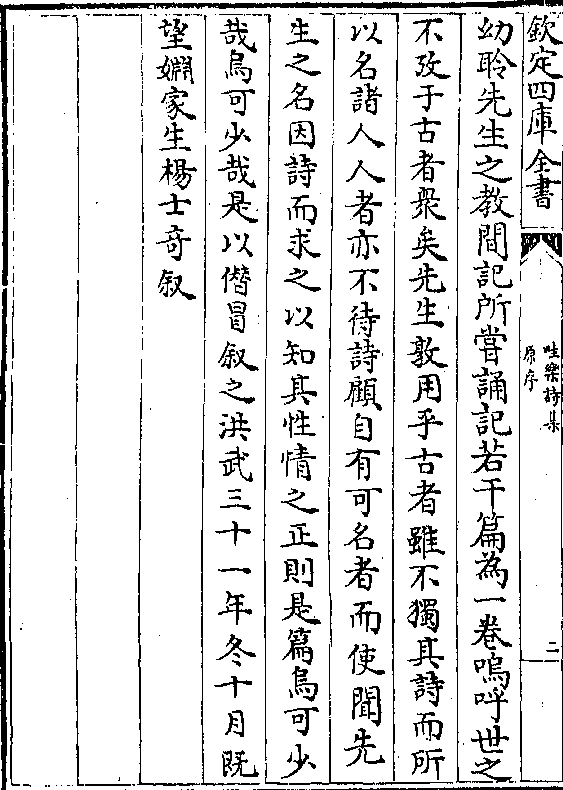 欽定四庫全書
畦樂詩集
原序
二
幼聆先生之教間記所嘗誦記若干篇為一卷嗚呼世之
不攷于古者衆矣先生敦用乎古者雖不獨其詩而所
以名諸人人者亦不待詩顧自有可名者而使聞先
生之名因詩而求之以知其性情之正則是篇烏可少
哉烏可少哉是以僭冒叙之洪武三十一年冬十月既
望婣家生楊士奇叙